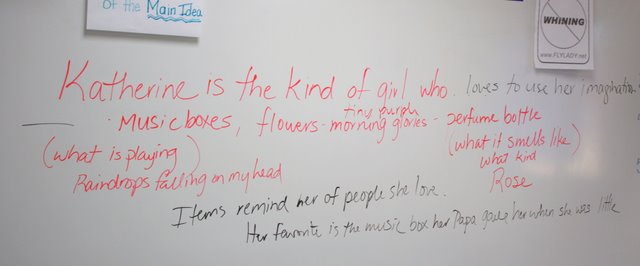 of the Main Idea
WHINING
www.FLYLADY.net
Katherine is the kind of girl who. loves to use her imagination.
tiny purple
· Music boxes, flowers - morning glories - perfume bottle
(what is playing)
(what it smells like)
what kind
Raindrops falling on my head
Rose
Items remind her of people she love.
Her favorite is the music box her Papa gave her when she was little